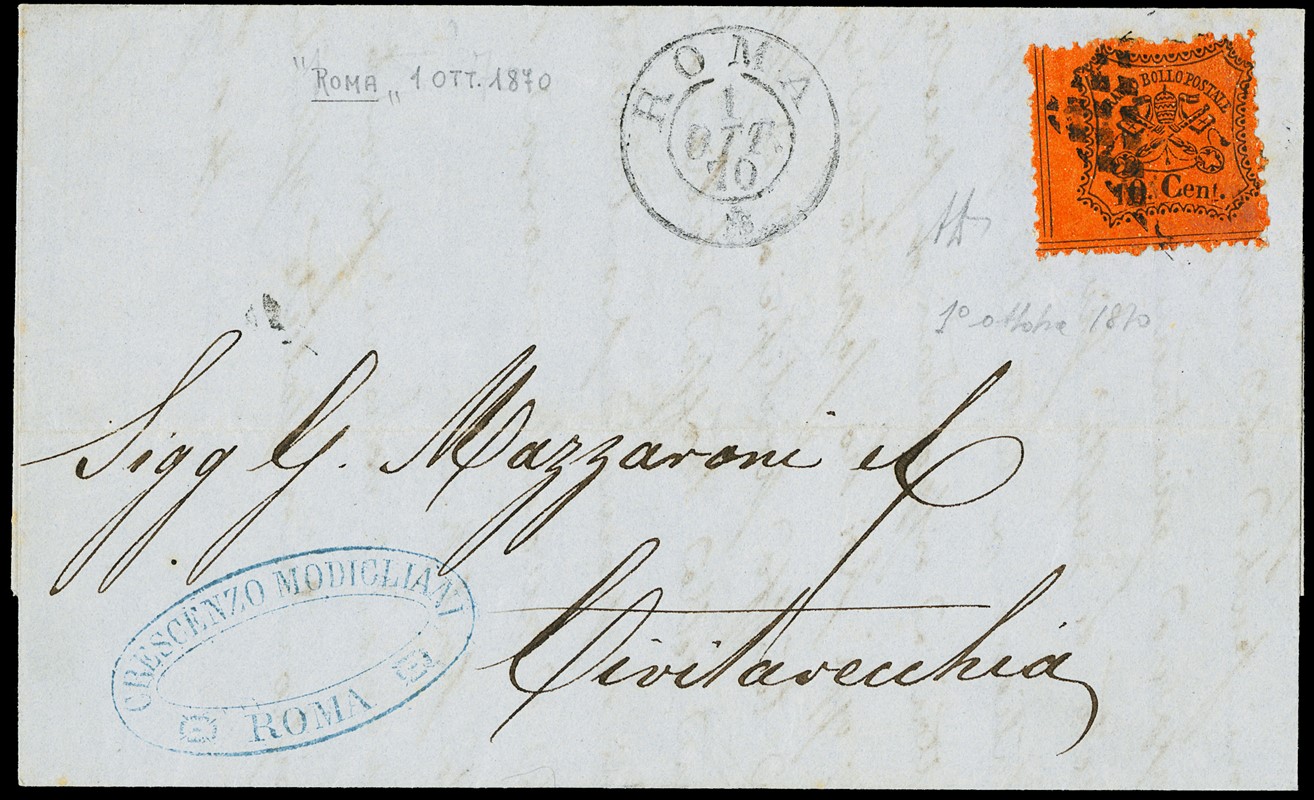 "Roma„ 1 OTT. 1870
ROMA
1
OTT.
70
BOLLO POSTALE
10. Cent.
1° ottobre 1870
Sigg G. Mazzaroni e C
Civitavecchia
CRESCENZO MODIGLIANI
ROMA